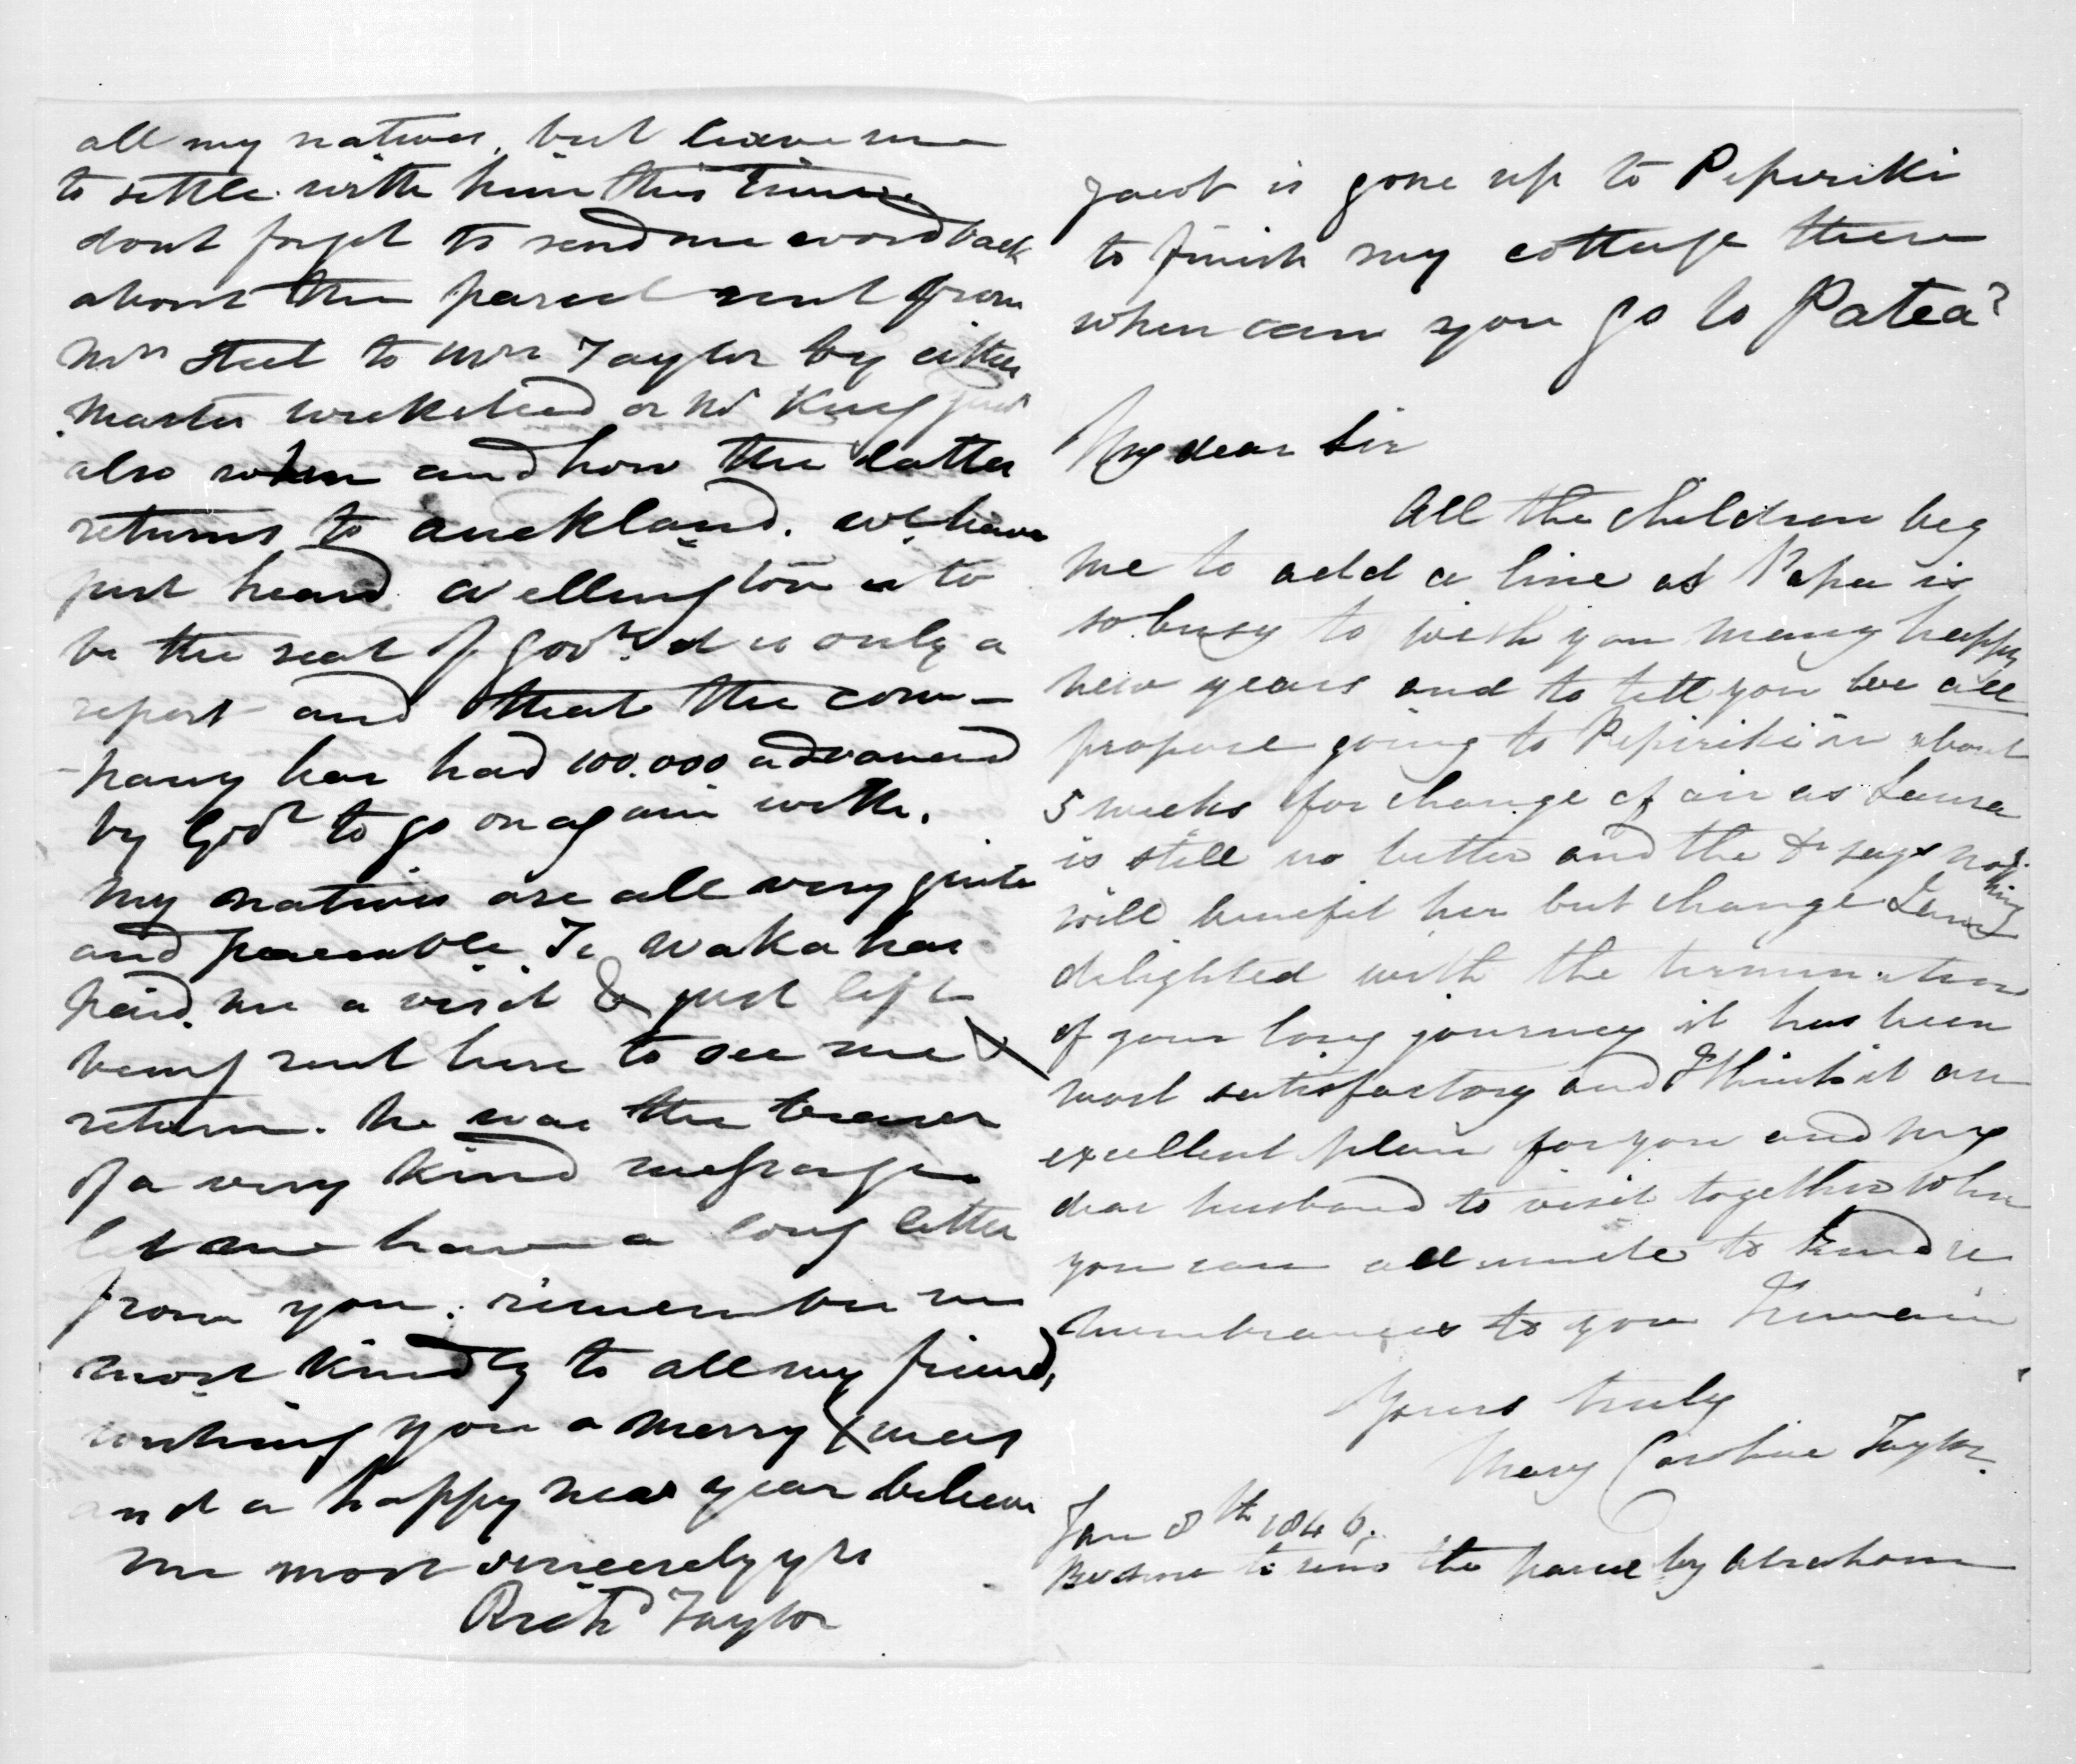 all my natives, but leave me
to settle with him this time
dont forget to send me word back
about the parcel sent from
Mrs Steel to Mrs Taylor by either
Master Wicksteed or Mr King
also when and how the latter
returns to auckland. we have
just heard Wellington is to
be the seat of Govt. it is only a
report and that the com-
-pany has had 100.000 advanced
by Govt to go on again with.
My natives are all very quite
and peaceable Te Waka has
paid me a visit & just left
being sent here to see me &
return. he was the bearer
of a very kind message
let me have a long letter
from you. remember me
most kindly to all my friends,
wishing you a merry Xmas
and a happy new year believe
me most sincerely yrs
Richd Taylor
Jacob is gone up to Pipiriki
to finish my cottage there
when can you go to Patea?
My dear Sir
All the children beg
me to add a line as Papa is
so busy to wish you many happy
new years and to tell you we all
propose going to Pipiriki in about
5 weeks for change of air as Laura
is still no better and the Dr says nothing
will benefit her but change I am
delighted with the termination
of your long journey it has been
most satisfactory and I think it an
excellent plan for you and my
dear husband to visit together when
you can all unite to kind re
membrances to you I remain
Yours truly
Mary Caroline Taylor.
Jan 8th 1846.
Be sure to send the parcel by Abraham